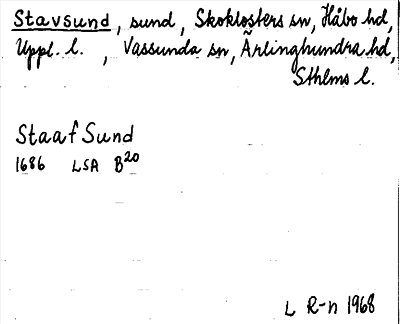 Stavsund, sund, Skoklosters sn, Håbo hd,
Uppl. l., Vassunda sn, Ärlinghundra hd,
Sthlms l.
Staaf Sund
1686 LSA B20
L R-n 1968